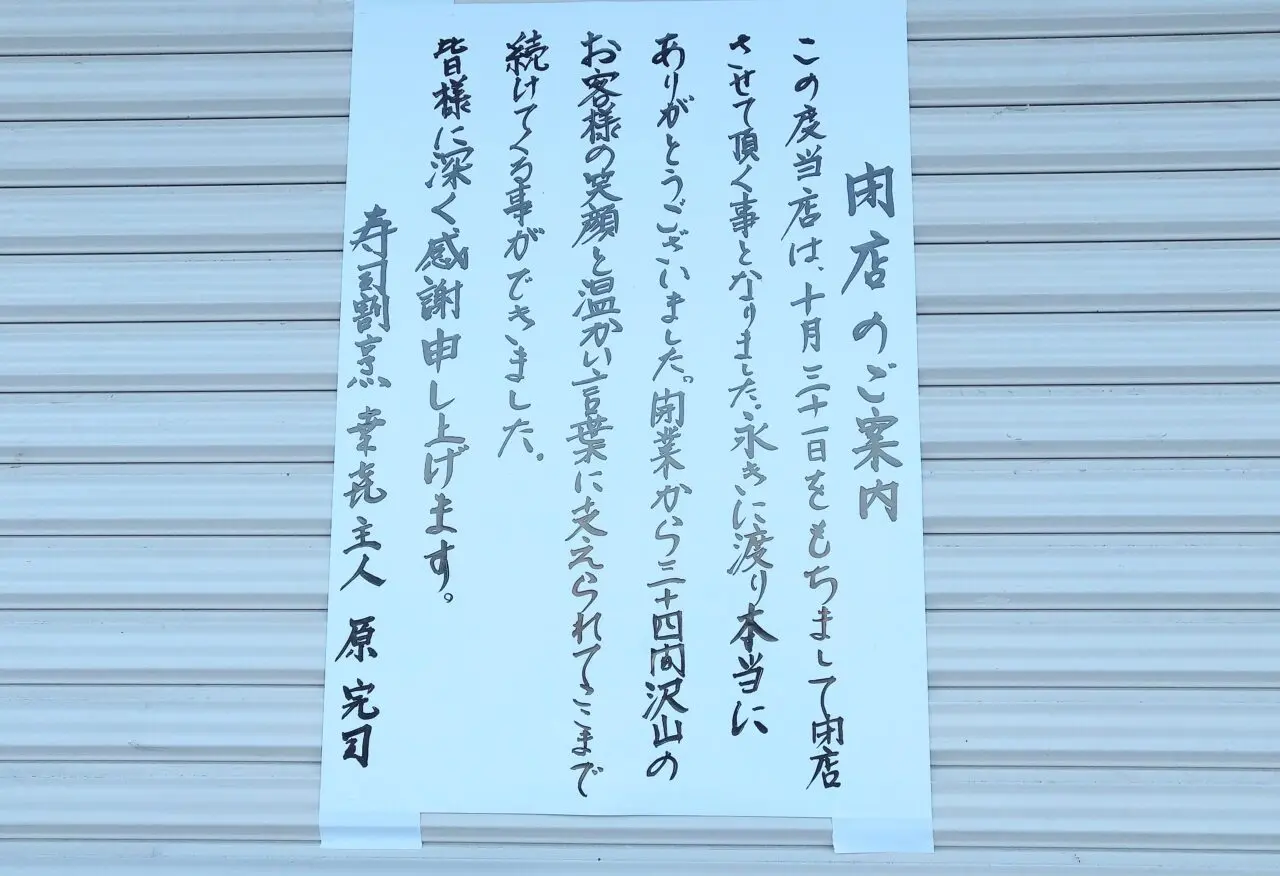 閉店のご案内
この度当店は、十月三十一日をもちまして閉店
させて頂く事となりました。永きに渡り本当に
ありがとうございました。開業から三十四間沢山の
お客様の笑顔と温かい言葉に支えられてここまで
続けてくる事ができました。
皆様に深く感謝申し上げます。
寿司割烹 幸㐂主人 原 完司